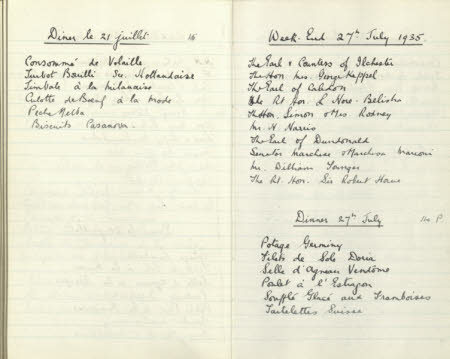 Diner le 21 juillet 16
Consommé de Volaille
Turbot Bouilli Sce. Hollandaise
Timbale à la milanaise
Culotte de Bœuf à la mode
Peche Melba
Biscuits Casanova.
Week-End 27th July 1935.
The Earl & Countess of Ilchester
The Hon Mrs. George Keppel
The Earl of Caledon
The Rt Hon. L Hore-Belisha
The Hon. Simon & Mrs. Rodney
Mr. H. Norris
The Earl of Dundonald
Senator Marchese & Marchesa Marconi
Mr. William Younger
The Rt. Hon. Sir Robert Horne
Dinner 27th July P
Potage Germiny
Filets de Sole Doria
Selle d'Agneau Vendôme
Poulet à l'Estragon
Soufflé Glacé aux Framboises
Tartelettes Suisse